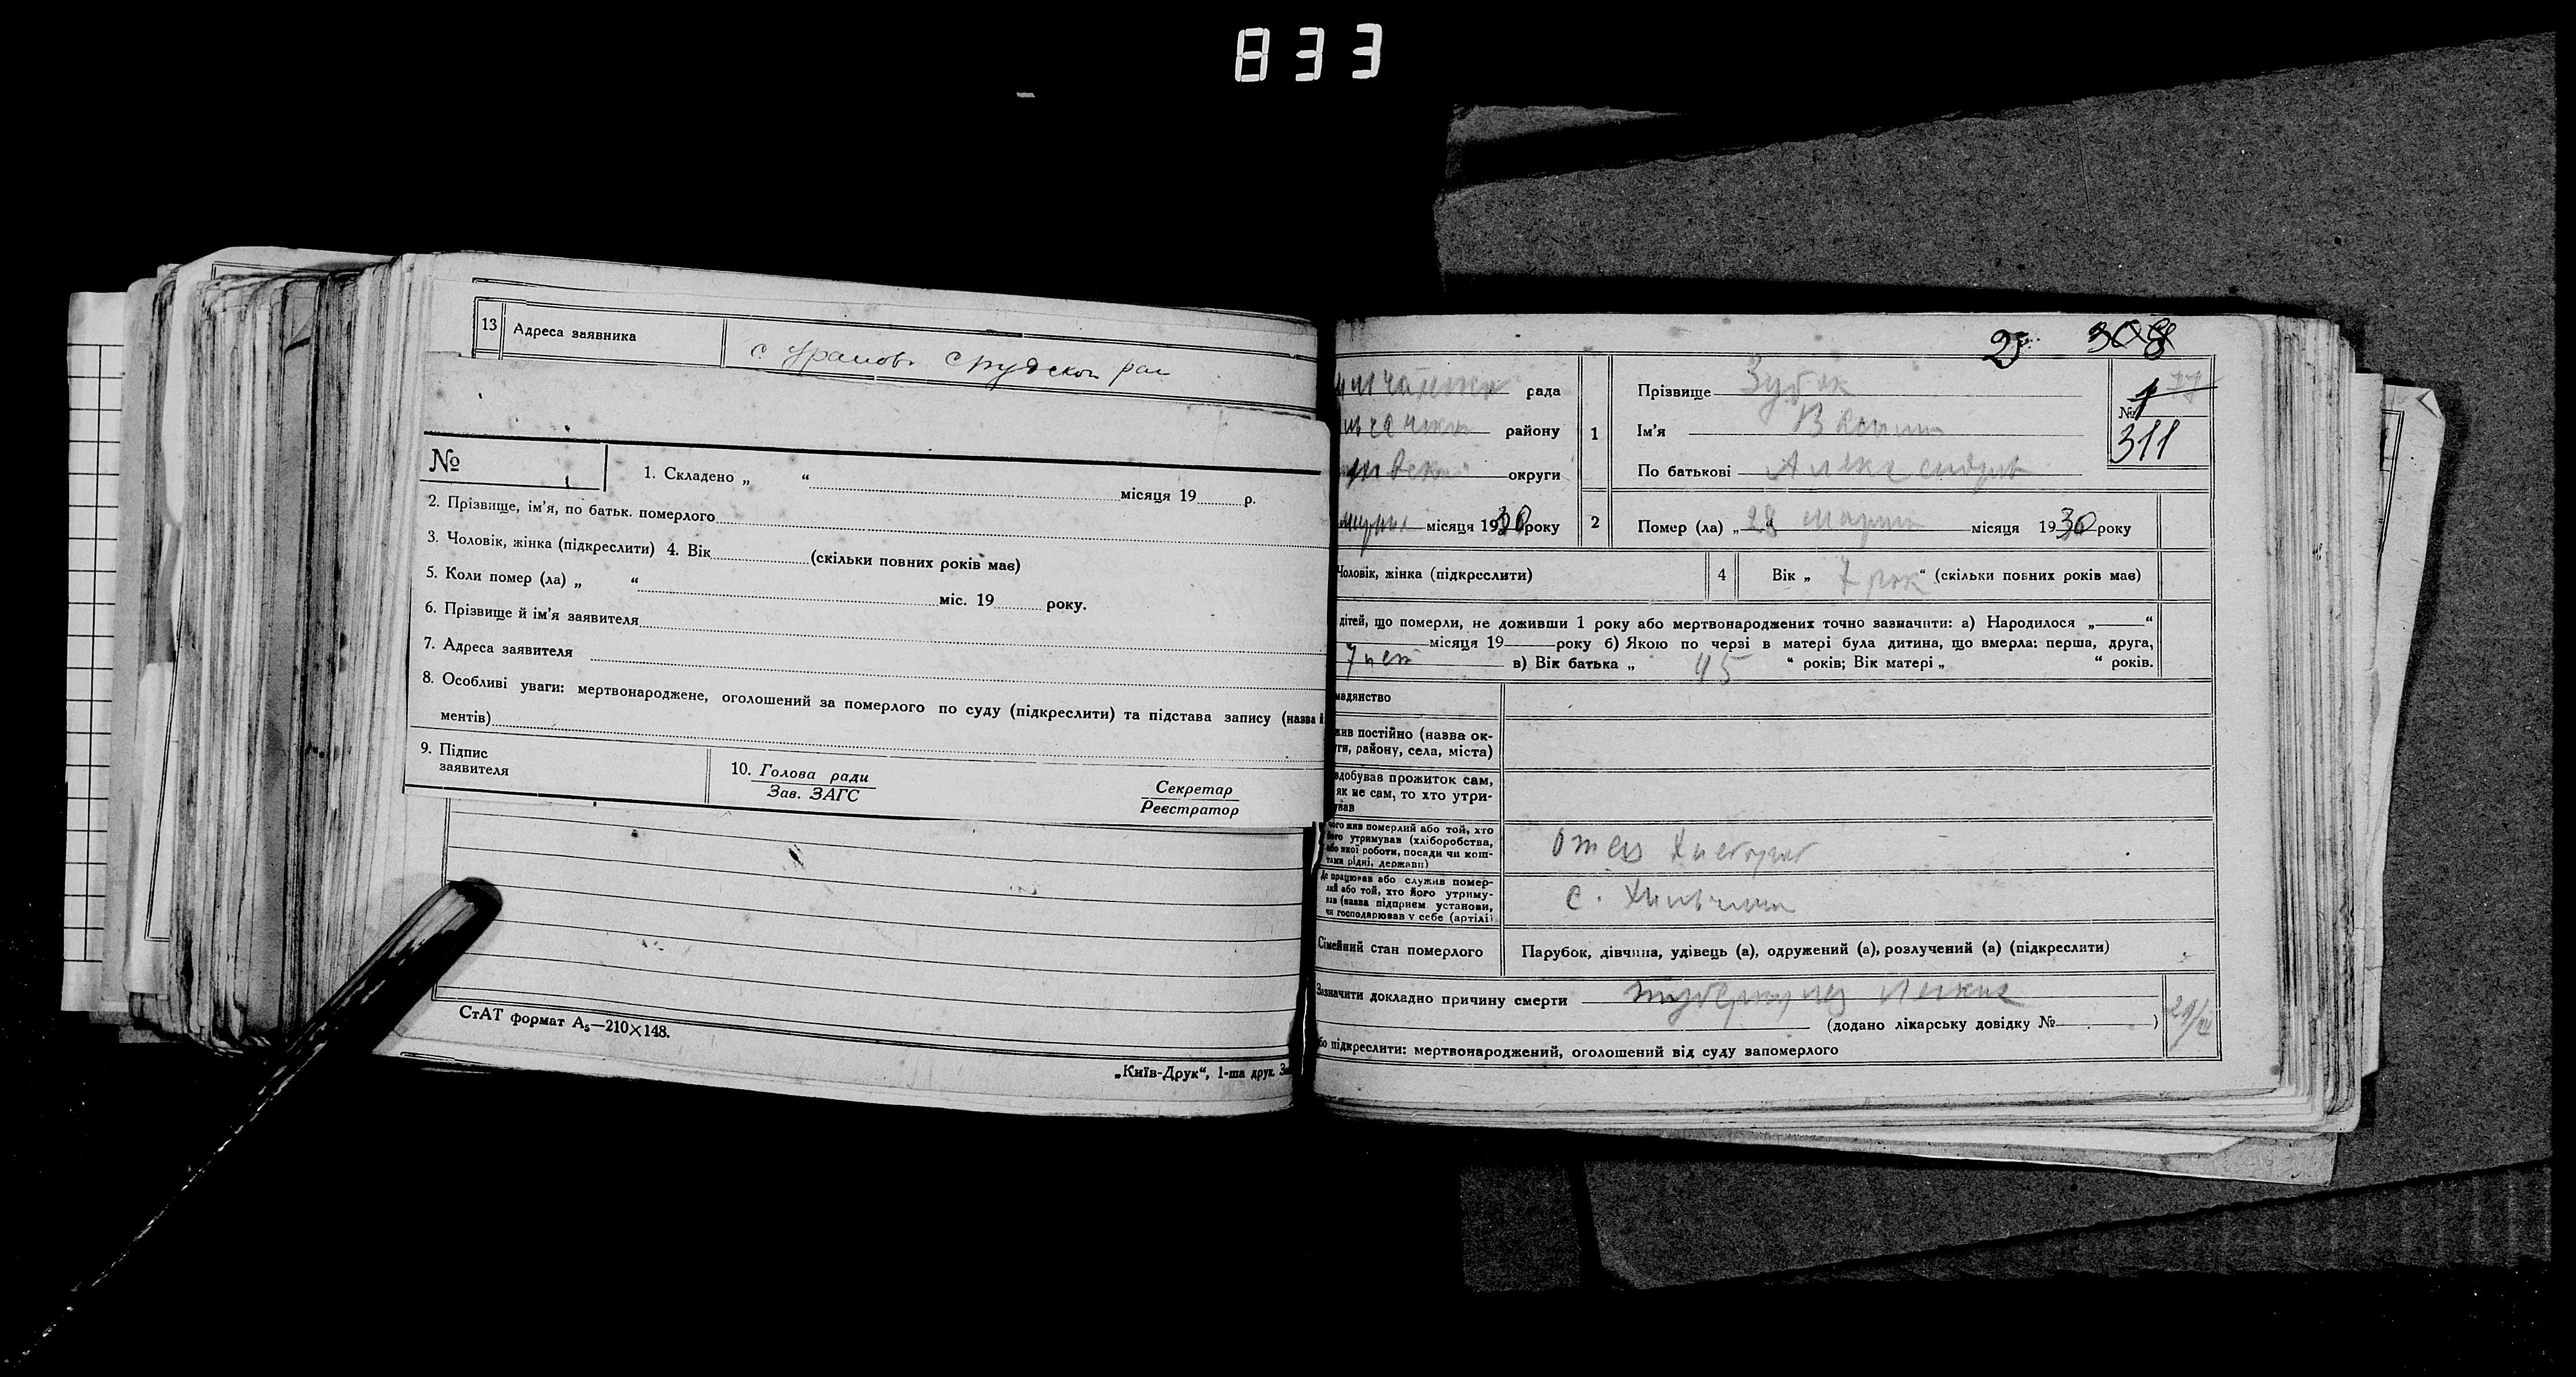 833
13 Адреса заявника
с. рай
№
1. Складено „ “ місяця 19 р.
2. Прізвище, ім'я, по батьк. померлого
3. Чоловік, жінка (підкреслити) 4. Вік (скільки повних років має)
5. Коли помер (ла) „ “ міс. 19 року.
6. Прізвище й ім'я заявителя
7. Адреса заявителя
8. Особливі уваги: мертвонароджене, оголошений за померлого по суду (підкреслити) та підстава запису (назва й
ментів)
9. Підпис
заявителя
10. Голова ради
Зав. ЗАГС
Секретар
Реєстратор
СтАТ формат А5—210×148.
„Київ-Друк“, 1-ша друк. З
25 308
рада
району
округи
місяця 1930 року
1
Прізвище Зубок
Ім'я Василь
По батькові
№ 1 77
311
2 Помер (ла) „28“ марта місяця 1930 року
Чоловік, жінка (підкреслити)
4 Вік „7 рок“ (скільки повних років має)
дітей, що померли, не доживши 1 року або мертвонароджених точно зазначити: а) Народилося „ “
місяця 19 року б) Якою по черзі в матері була дитина, що вмерла: перша, друга,
7 лет в) Вік батька „ 45 “ років; Вік матері „ “ років.
мадянство
жив постійно (назва ок-
ги, району, села, міста)
здобував прожиток сам,
як не сам, то хто утри-
ував
чого жив померлий або той, хто
його утримував (хліборобства,
або якої роботи, посади чи кош-
тами рідні, держави)
отец
Де працював або служив помер-
лий або той, хто його утриму-
вав (назва підприєм установи,
чи господарював у себе (артілі)
с.
Сімейний стан померлого
Парубок, дівчина, удівець (а), одружений (а), розлучений (а) (підкреслити)
Зазначити докладно причину смерти туберкулез легких
(додано лікарську довідку № )
бо підкреслити: мертвонароджений, оголошений від суду запомерлого